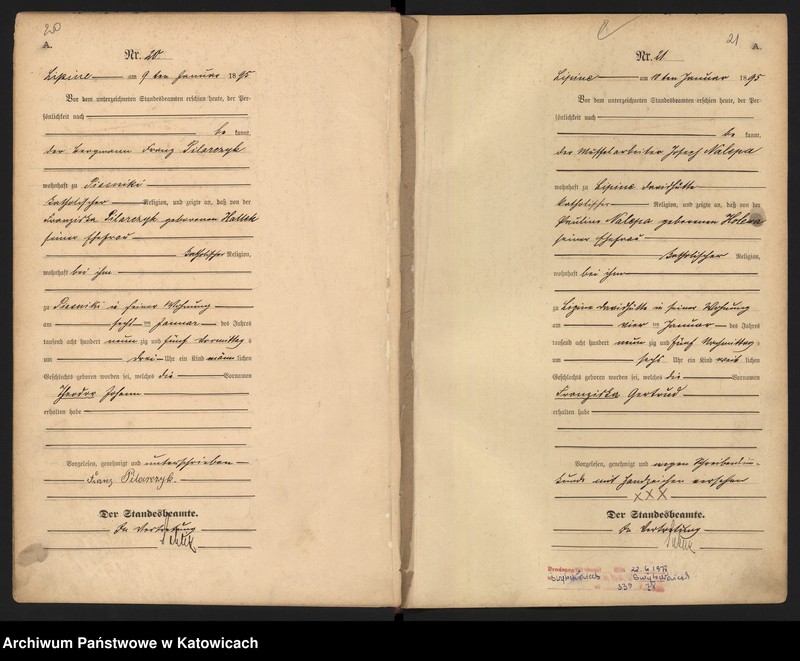 20
A.
Nr. 20
Lipine am 9ten Januar 1895
Vor dem unterzeichneten Standesbeamten erschien heute, der Per-
sönlichkeit nach
be kannt,
der Bergmann Franz Pilarczyk
wohnhaft zu Piesniki
katholischer Religion, und zeigte an, daß von der
Franziska Pilarczyk geborenen
seiner Ehefrau
katholischer Religion,
wohnhaft bei ihm
zu Piesniki in seiner Wohnung
am sechs ten Januar des Jahres
tausend acht hundert neun zig und fünf Vormittags
um drei Uhr ein Kind männ lichen
Geschlechts geboren worden sei, welches die Vornamen
Theodor Johann
erhalten habe
Vorgelesen, genehmigt und unterschrieben
Franz Pilarczyk.
Der Standesbeamte.
In Vertretung
21
A.
Nr. 21
Lipine am ten Januar 1895
Vor dem unterzeichneten Standesbeamten erschien heute, der Per-
sönlichkeit nach
be kannt,
der Muffelarbeiter Joseph Nalepa
wohnhaft zu Lipine Davidhütte
katholischer Religion, und zeigte an, daß von der
Pauline Nalepa geborenen
seiner Ehefrau
katholischer Religion,
wohnhaft bei ihm
zu Lipine Davidhütte in seiner Wohnung
am vier ten Januar des Jahres
tausend acht hundert neun zig und fünf Nachmittags
um sechs Uhr ein Kind weib lichen
Geschlechts geboren worden sei, welches die Vornamen
Franziska Gertrud
erhalten habe
Vorgelesen, genehmigt und wegen Schreibensun-
kunde mit Handzeichen versehen
XXX
Der Standesbeamte.
In Vertretung
Archiwum Państwowe w Katowicach